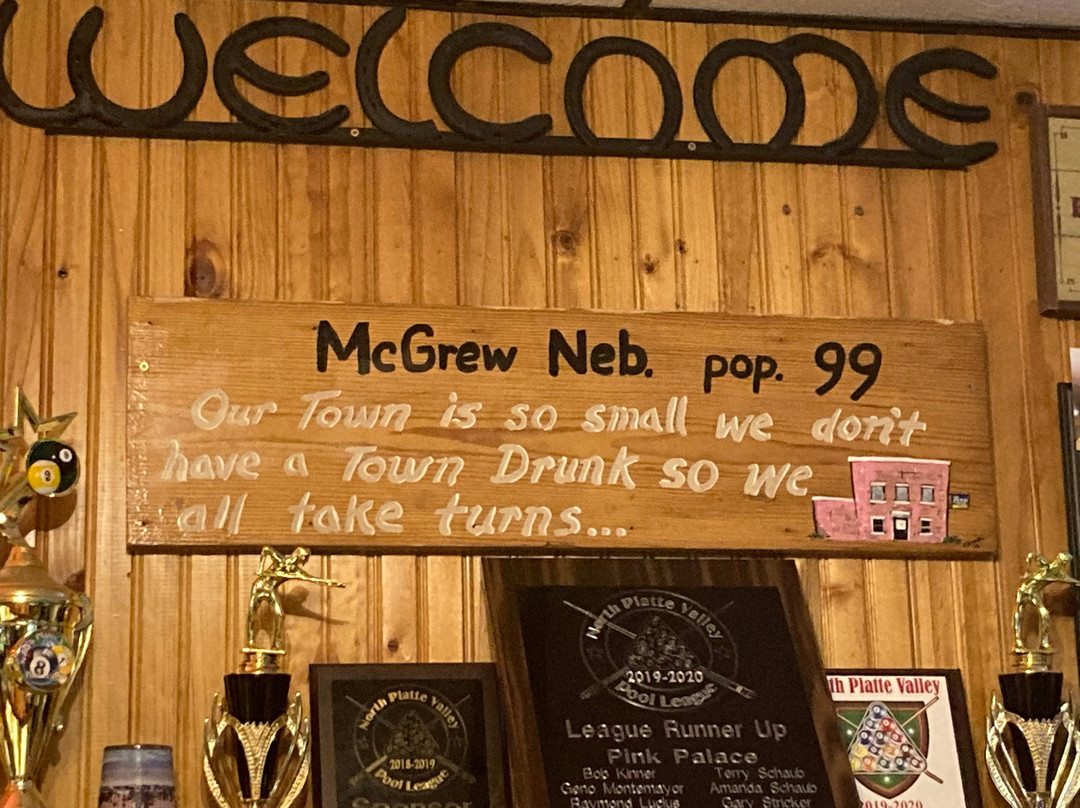 WELCOME
McGrew Neb. pop. 99
Our Town is so small we don't
have a Town Drunk so we
all take turns...
9
8
North Platte Valley
2018-2019
Pool League
Sponsor
North Platte Valley
2019-2020
Pool League
League Runner Up
Pink Palace
Bob Kinner Terry Schaub
Geno Montemayor Amanda Schaub
Raymond Lucius Gary Stricker
th Platte Valley
2019-2020